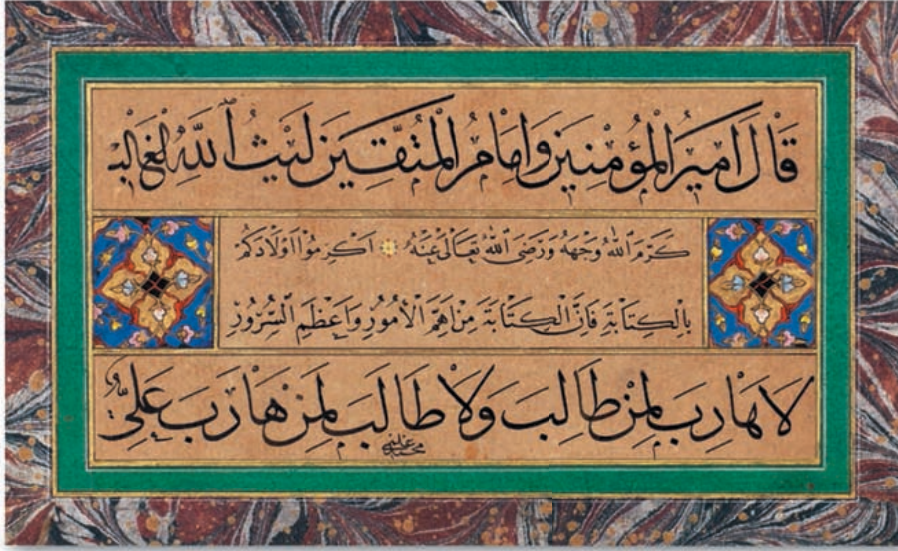 قَالَ اَمِيرُ الْمُؤْمِنِينَ وَاِمَامُ الْمُتَّقِينَ لَيْثُ ٱللّٰهِ الْغَالِبُ
كَرَّمَ ٱللّٰهُ وَجْهَهُ وَرَضِىَ ٱللّٰهُ تَعَالٰى عَنْهُ اَكْرِمُوا اَوْلَادَكُمْ
بِالْكِتَابَةِ فَاِنَّ الْكِتَابَةَ مِنْ اَهَمِّ الْاُمُورِ وَاَعْظَمِ السُّرُورِ
لَا هَارِبَ لِمَنْ طَالَبَ وَلَا طَالَبَ لِمَنْ هَارَبَ عَلِىّ